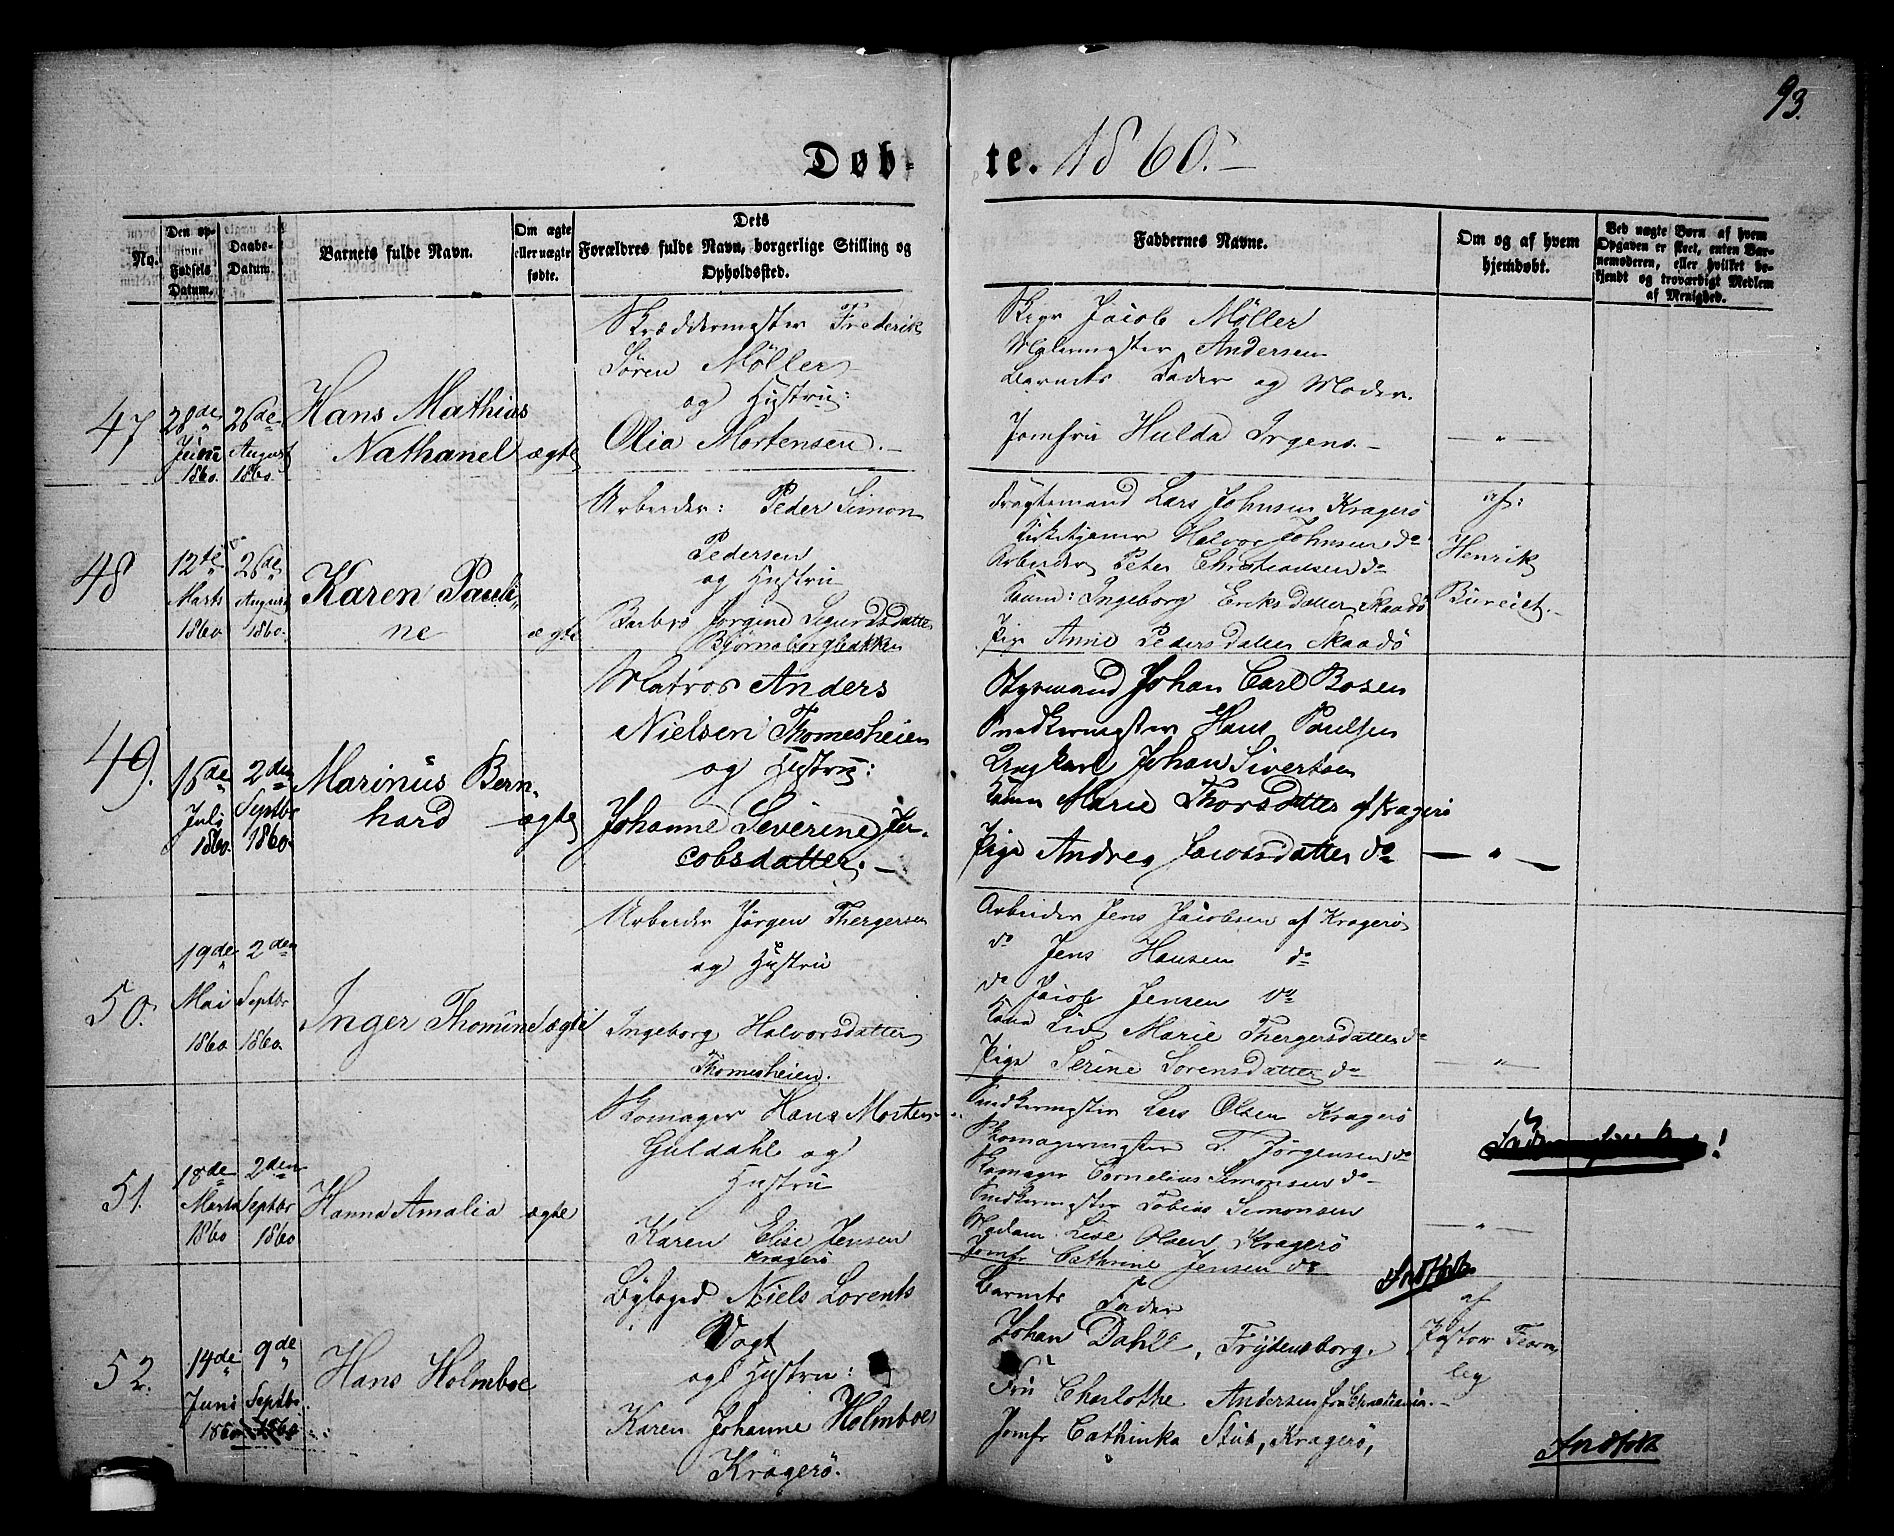 93.
Døb-te. 1860.
No.
Den op-
givne
Fødsels
Datum.
Daabs-
Datum.
Barnets fulde Navn.
Om ægte
eller uægte
fødte.
Dets
Forældres fulde Navn, borgerlige Stilling og
Opholdssted.
Faddernes Navne.
Om og af hvem
hjemdøbt.
Ved uægte Børn af hvem
Opgaven er skeet, enten Bar-
nemoderen, eller hvilket be-
kjendt og troværdigt Medlem
af Menighed.
47
28de
Juni
1860.
26de
August
1860.
Hans Mathias
Nathanel
ægte
Skræddermester Frederik
Søren Möller
og Hustru:
Olia Mortensen.
Jacob Möller
Malermester Andersen
Barnets Fader og Moder.
Jomfru Hulda Irgens.
48
12te
Marts
1860.
26de
August
1860.
Karen Pauli,,
ne
ægte
Arbeider: Peder Simon
Pedersen
og Hustru
Barbro Jørgine Sigurdsdatter
Bjørneborgbakken
Fragtemand Lars Johnsen Kragerö
Kirketjener Halvor Johnsen do
Arbeider Peter Christiansen do
Kone: Ingeborg Eriksdatter Skaadö
Pige Anne Pedersdatter Skaadö
af:
Henrik
49.
16de
Juli
1860.
2den
Septbr
1860.
Marinus Bern-
hard
ægte
Matros Anders
Nielsen Thomesheien
og Hustru:
Johanne Severine Ja-
cobsdatter.
Styrmand Johan Carl Bosen
Snedkermester Hans Paulsen
Ungkarl Johan Sivertsen
Kone Marie Thorsdatter af Kragerö
Pige Andrea Jacobsdatter do
50.
19de
Mai
1860.
2den
Septbr
1860.
Inger Thomine
ægte
Arbeider Jørgen Thergersen
og Hustru
Ingeborg Halvorsdatter
Thomesheien.
Arbeider Jens Jacobsen af Kragerö
do Jens Hansen do
do Jacob Jensen do
Kone Liv Marie Thergersdatter do
Pige Serine Sørensdatter do
51.
18de
Marts
1860
2den
Septbr
1860
Hanna Amalia
ægte
Skomager Hans Morten
Guldahl og
Hustru
Karen Elise Jensen
Kragerö
Snedkermester Lars Olsen Kragerö
Skomagermester T. Jørgensen do
Skomager Cornelius Simonsen do
Snedkermester Tobias Simonsen
Madam Lise Olsen Kragerö
Jomfr Cathrine Jensen do
52.
14de
Juni
1860
9de
Septbr.
1860
Hans Holmboe
Byfoged Niels Lorents
Vogt
og Hustru:
Karen Johanne Holmboe
Kragerö.
Barnets Fader
Johan Dahll, Frydensborg.
Fru Charlothe Andersen fra Christiania.
Jomfr Cathinka Stub, Kragerö,
af
Pastor Fearn,
ley